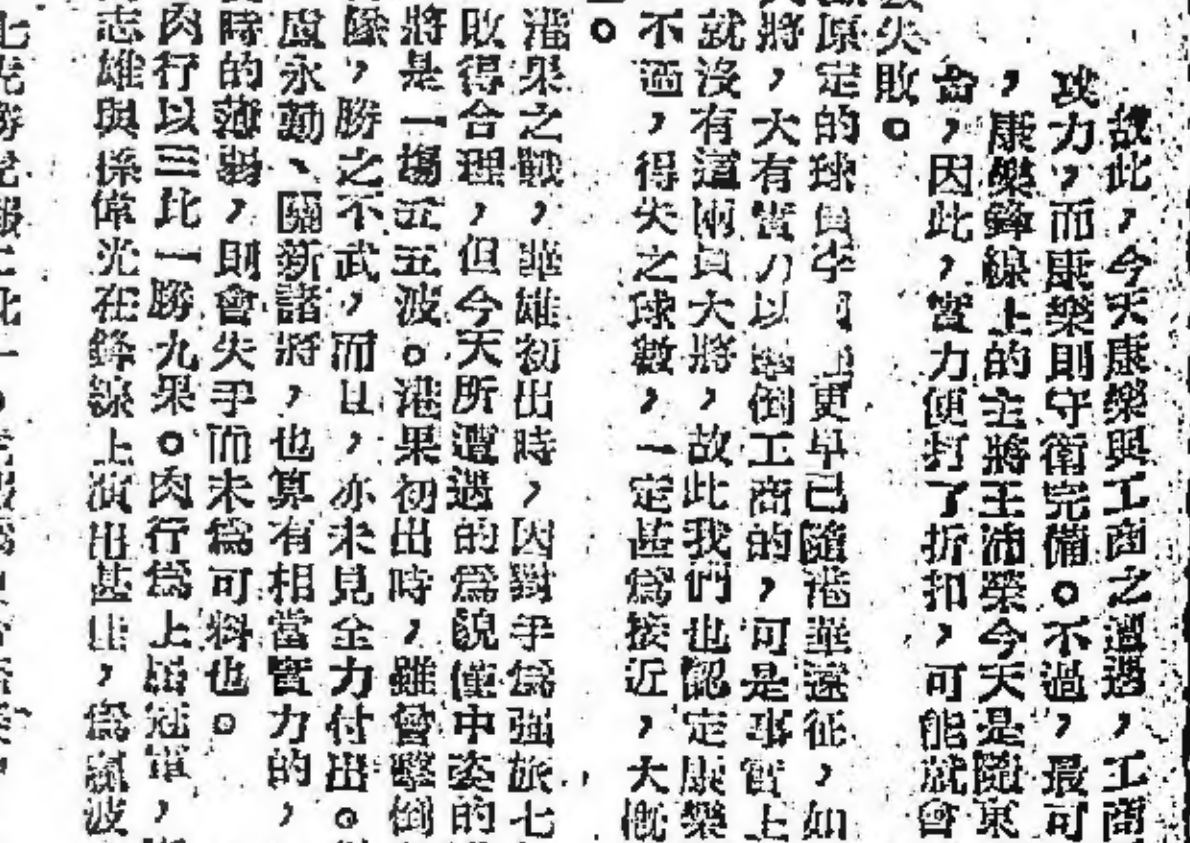 故此,今天康樂與工商之遭遇,工商
攻力,而康樂則守衛完備。不過,最可
,康樂鋒線上的主將王沛榮今天是隨東
,因此,實力便打了折扣,可能就會
失敗。
原定的球員李 更早已隨港華遠征,如
將,大有實力以擊倒工商的,可是事實上
就沒有這兩員大將,故此我們也認定康樂
不過,得失之球數,一定甚為接近,大概
。
港果之戰,華雄初出時,因對手為强旅七
敗得合理,但今天所遭遇的為貌僅中姿的
將是一場五五波。港果初出時,雖曾擊倒
隊,勝之不武,而且,亦未見全力付出。
盧永勤、關新諸將,也算有相當實力的,
時的薄弱,則會失手而未為可料也。
肉行以三比一勝九果。肉行為上屆冠軍,
志雄與孫偉光在鋒線上演出甚佳,為贏波